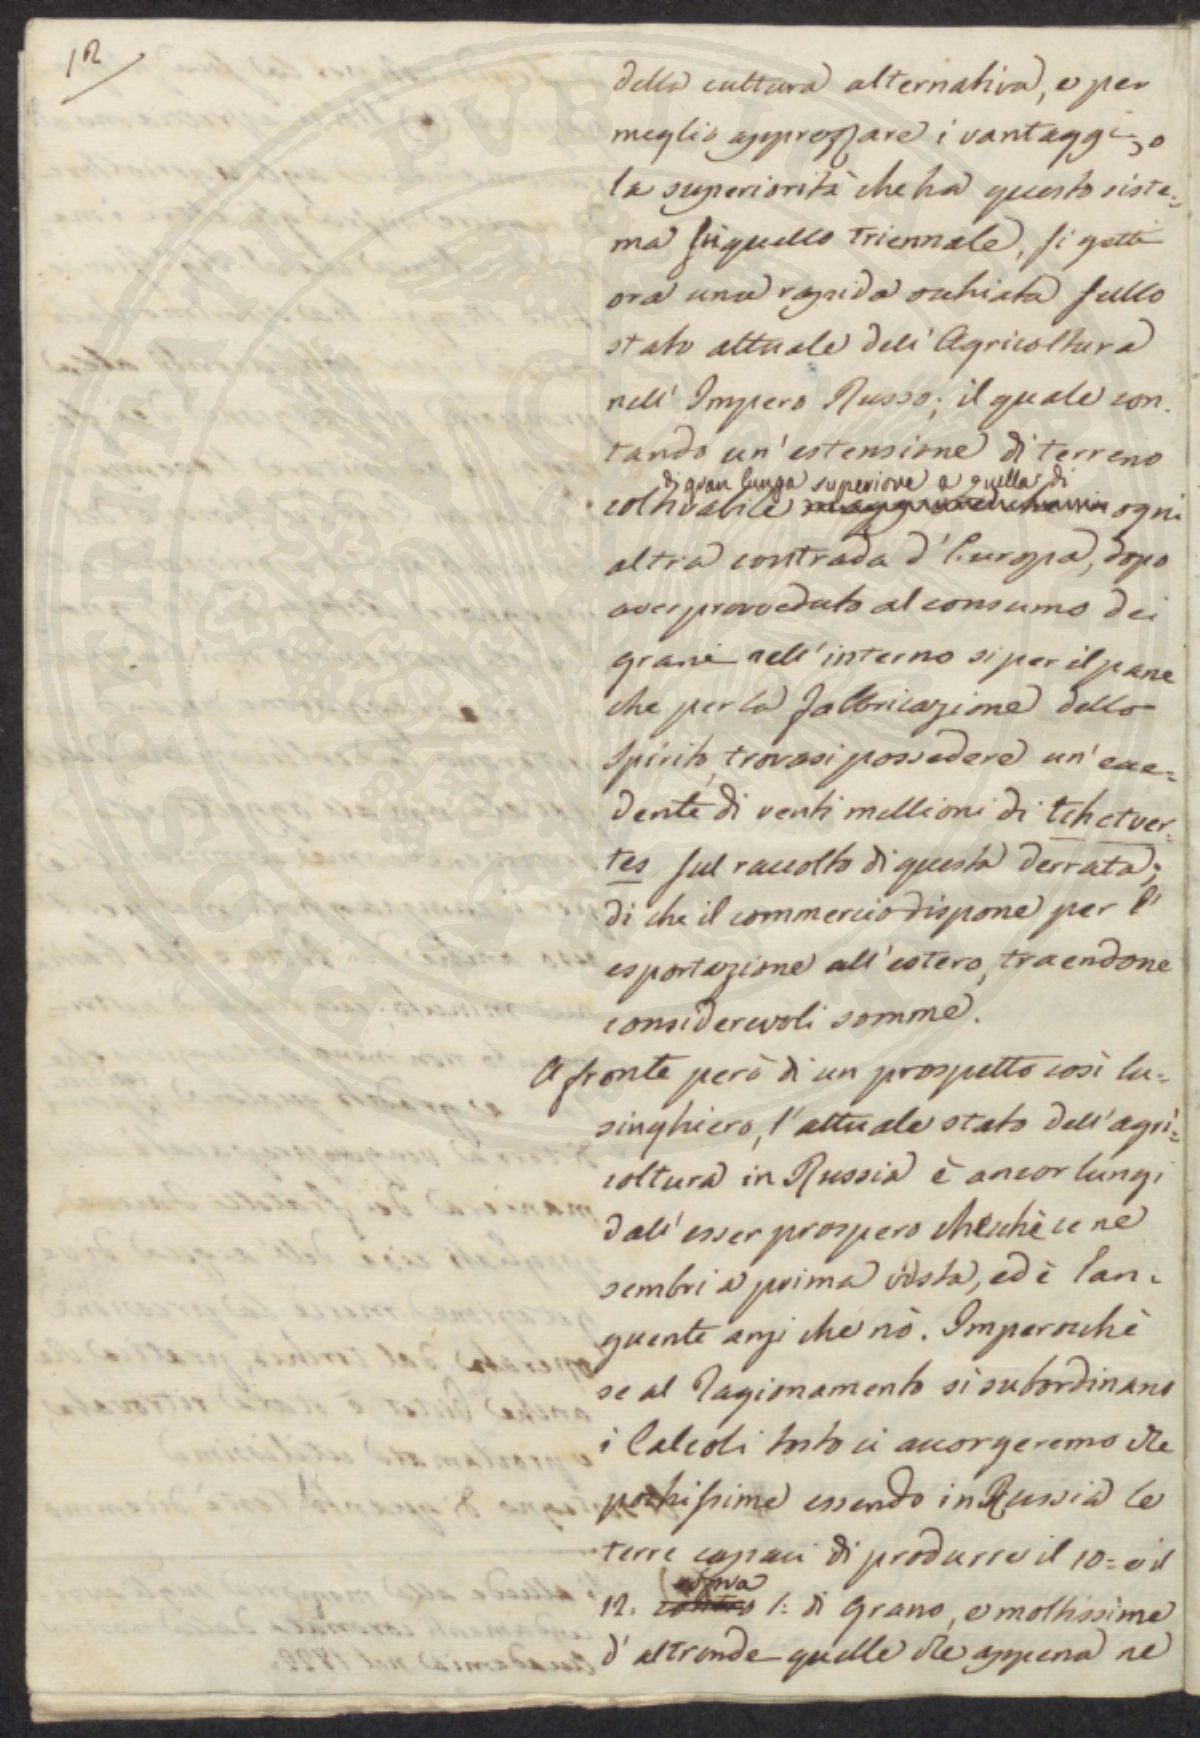 12
della cultura alternativa, e per
meglio apprezzare i vantaggi, e
la superiorità che ha questo siste=
ma sù quello Triennale, si getti
ora una rapida occhiata sullo
stato attuale dell' Agricoltura
nell' Impero Russo; il quale con=
tando un' estensione di terreno
di gran lunga superiore a quella di
coltivabile ogni
altra contrada d' Europa, dopo
aver provveduto al consumo dei
grani nell' interno si per il pane
che per la fabbricazione dello
Spirito, trovasi possedere un' ecce=
dente di venti millioni di tchetver=
tes sul raccolto di questa derrata;
di che il commercio dispone per l'
esportazione all' estero, traendone
considerevoli somme.
A fronte però di un prospetto così lu=
singhiero, l' attuale stato dell' agri=
coltura in Russia è ancor lungi
dall' esser prospero checchè ce ne
sembri a prima vista, ed è lan=
guente anzi che nò. Imperocchè
se al Ragionamento si subordinano
i Calcoli tosto ci accorgeremo che
pochissime essendo in Russia le
terre capaci di produrre il 10= e il
12=
1= di Grano, e moltissime
d' altronde quelle che appena ne